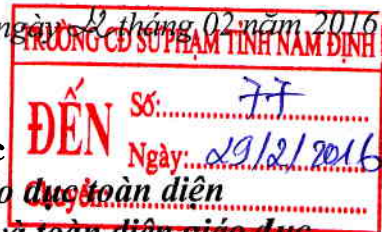 ngày 22 tháng 02 năm 2016
TRƯỜNG CĐ SƯ PHẠM TỈNH NAM ĐỊNH
ĐẾN
Số: 77
Ngày: 29/2/2016
Chuyển:
dục toàn diện
và toàn diện giáo dục